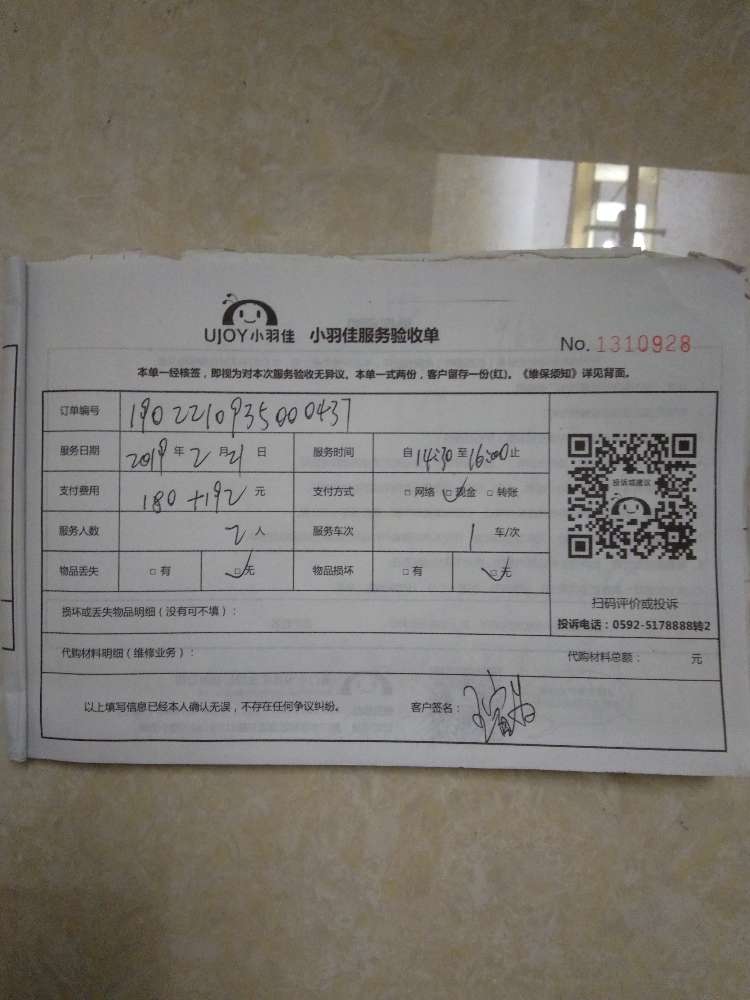 UJOY小羽佳 小羽佳服务验收单 No. 1310928
本单一经核签，即视为对本次服务验收无异议。本单一式两份，客户留存一份(红)。《维保须知》详见背面。
订单编号 1902210935000437
服务日期 2019 年 2 月 21 日 服务时间 自 14:30 至 16:00 止
支付费用 180+192 元 支付方式 □ 网络 ☑ 现金 □ 转账
服务人数 2 人 服务车次 1 车/次
物品丢失 □ 有 ☑ 无 物品损坏 □ 有 ☑ 无
投诉或建议
扫码评价或投诉
投诉电话：0592-5178888转2
损坏或丢失物品明细（没有可不填）：
代购材料明细（维修业务）： 代购材料总额： 元
以上填写信息已经本人确认无误，不存在任何争议纠纷。 客户签名：